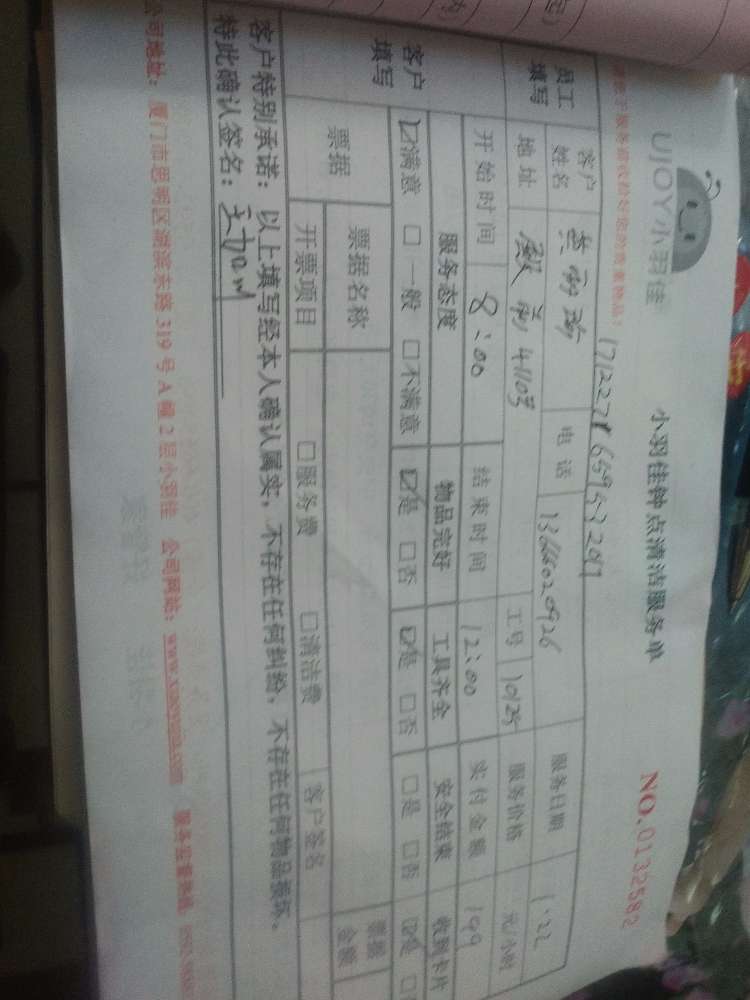 UJOY小羽佳
小羽佳钟点清洁服务单
NO.0132582
员工填写
客户姓名
电话
服务日期 1.22
地址
工号 10125
服务价格 元/小时
开始时间 8:00
结束时间 12:00
实付金额 199
客户填写
服务态度
物品完好
工具齐全
安全结束
收到卡片
☑满意 □一般 □不满意
☑是 □否
☑是 □否
□是 □否
☑是
票据
票据名称
票据金额
开票项目
□服务费 □清洁费
客户签名
客户特别承诺：以上填写经本人确认属实，不存在任何纠纷，不存在任何物品损坏。
特此确认签名：
公司地址：厦门市思明区湖滨东路319号A幢2层小羽佳 公司网站：www.xiaoyujia.com 服务监督热线：